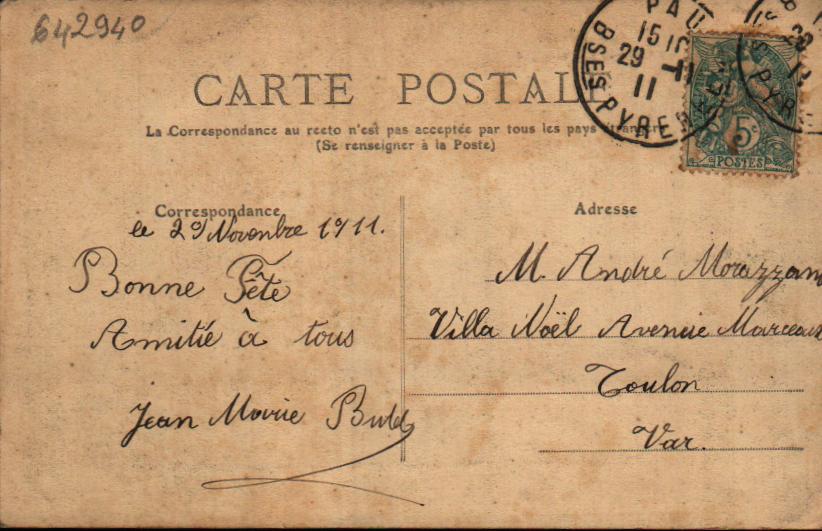 642940
CARTE POSTALE
La Correspondance au recto n'est pas acceptée par tous les pays étrangers
(Se renseigner à la Poste)
PAU
15
29 -11
11
BSES PYRENEES
5c
POSTES
Correspondance
le 29 Novembre 1911.
Bonne Fête
Amitié à tous
Jean Marie
Adresse
M. André Morazzani
Villa Noël Avenue Marceau
Toulon
Var.